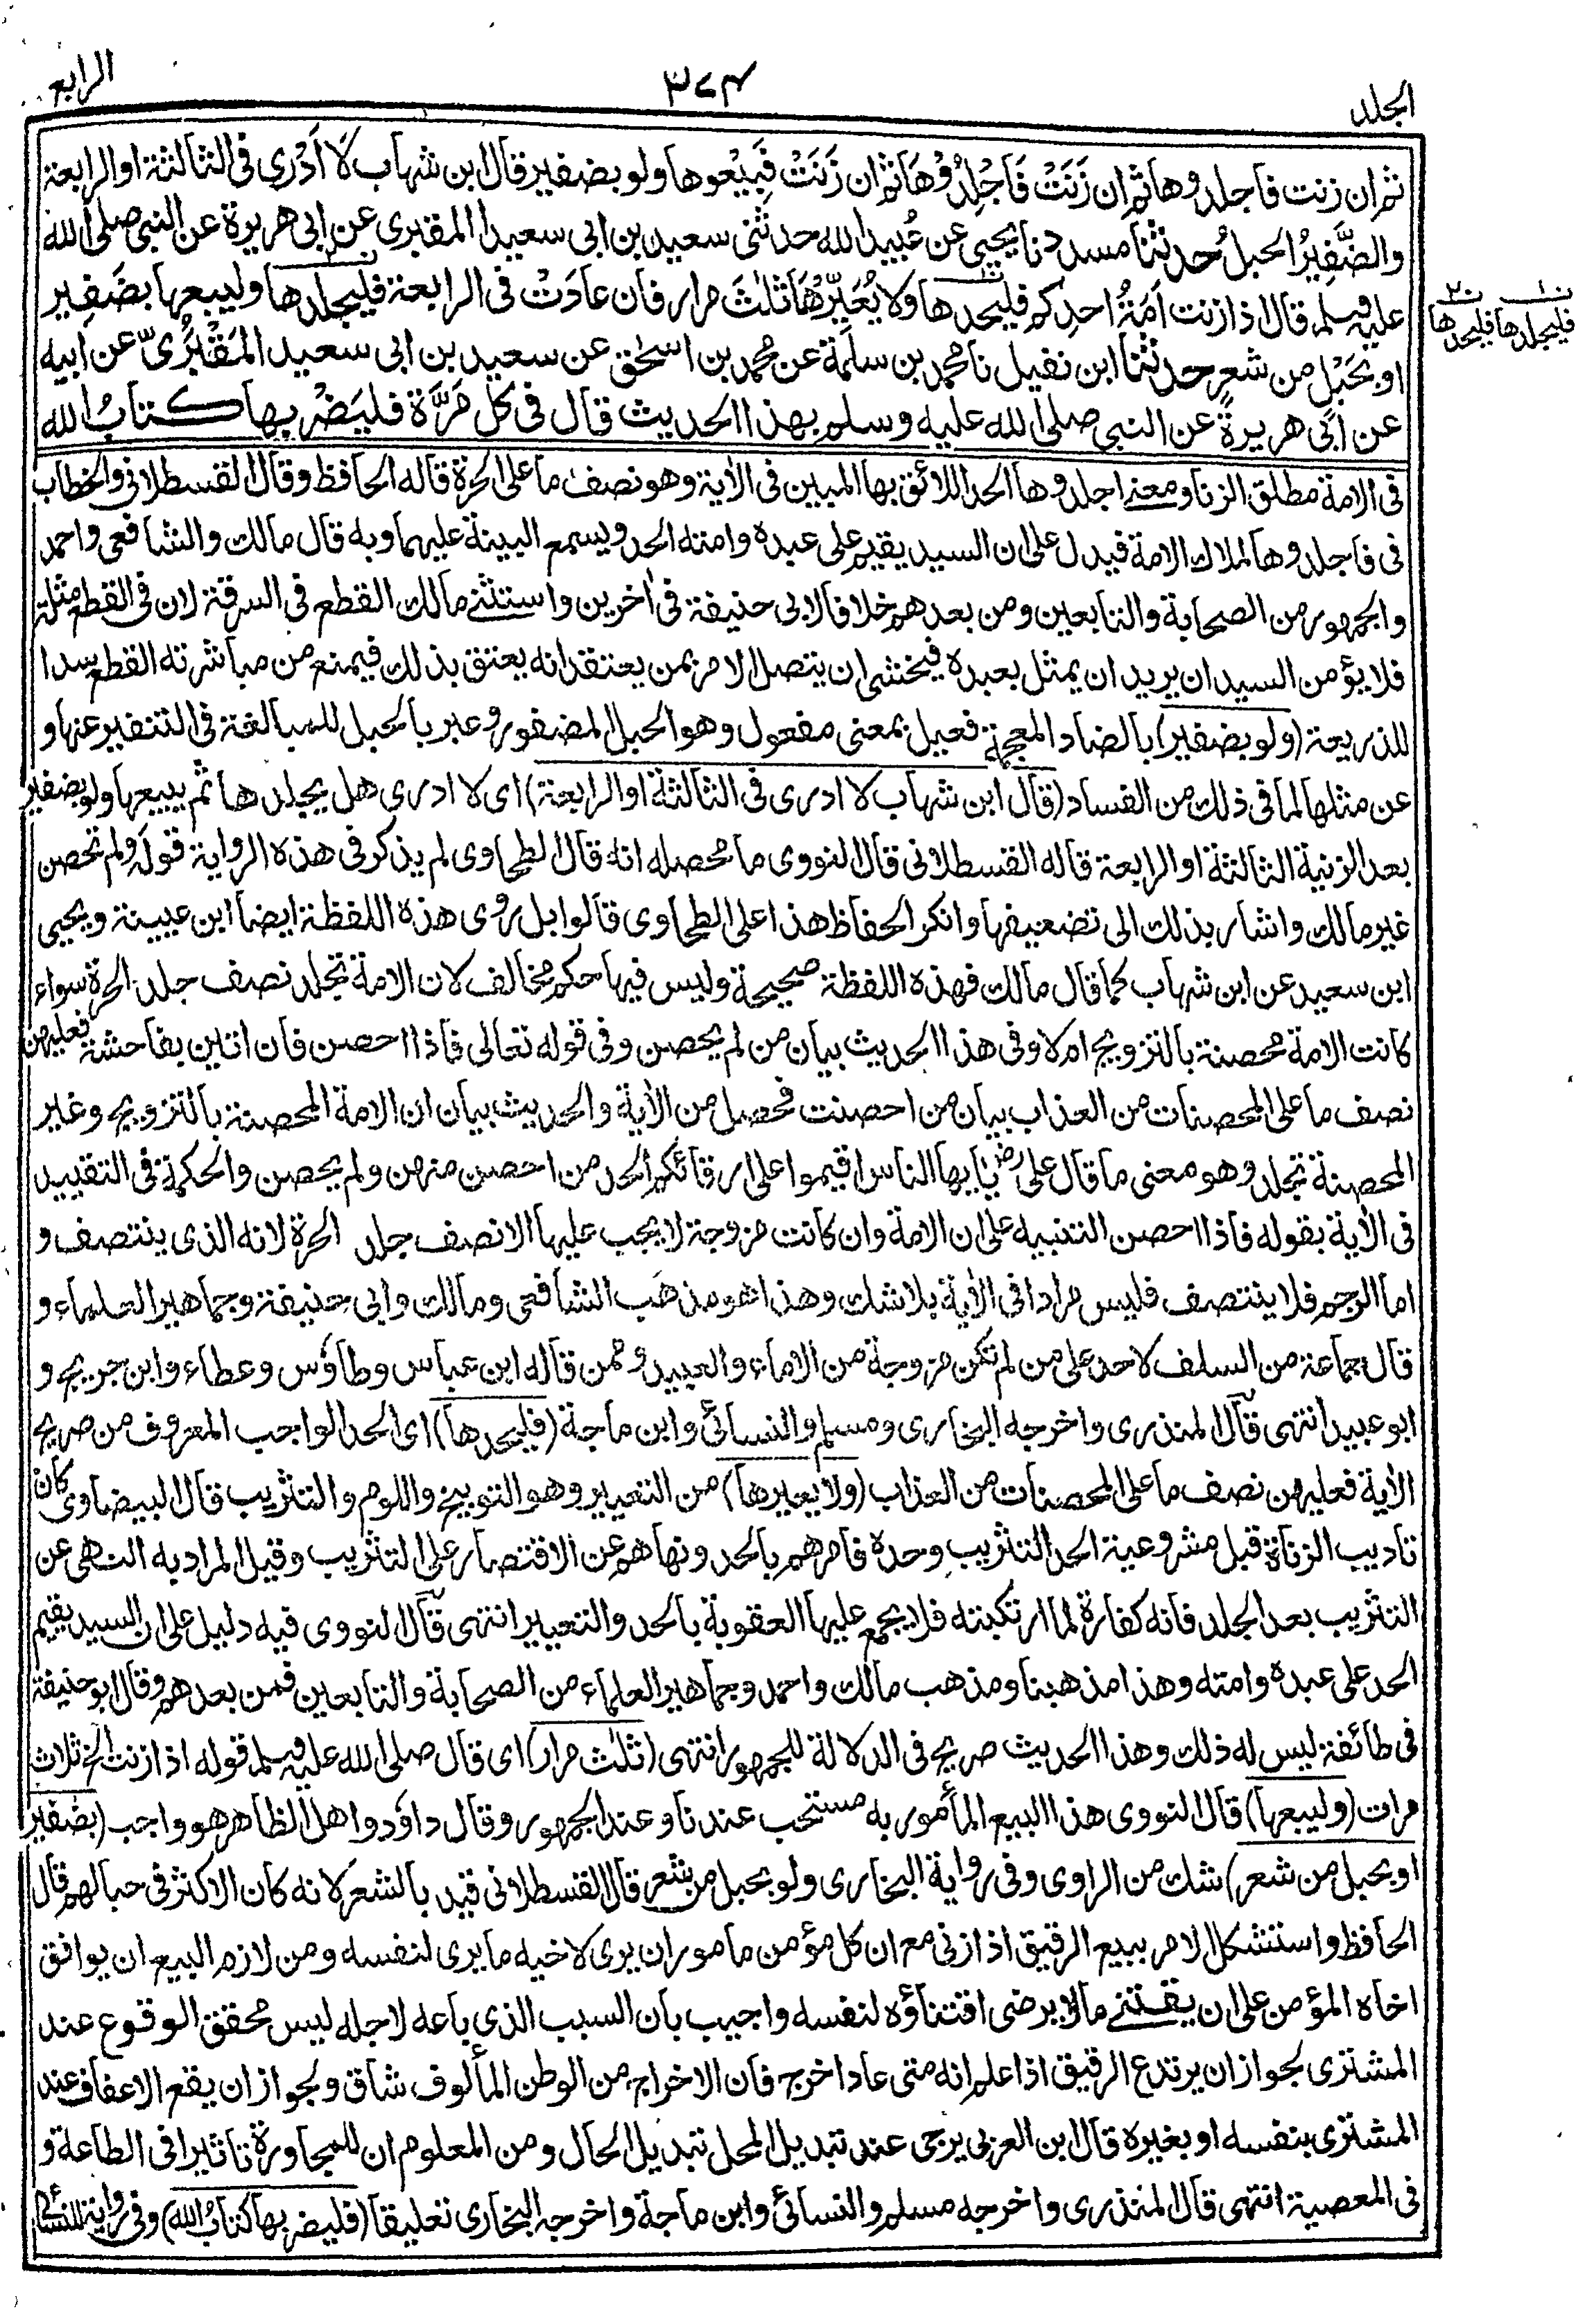 الجلد
٣٧٤
الرابع
ثم ان زنت فاجلدوها ثم ان زَنَتْ فَاجْلِدُوْهَا ثم ان زَنَتْ فَبِيْعُوها ولو بضفير قال ابن شهاب لَا اَدْرِى فى الثالثة او الرابعة
والضَّفِيْرُ الحبلُ حدثنا مسدد نا يحيى عن عُبيد الله حدثنى سعيد بن ابى سعيد المقبرى عن ابى هريرة عن النبى صلى الله
عليه وسلم قال اذا زنت اَمَةُ احدِكم فليحدها ولا يُعَيِّرْهَا ثلٰثَ مرار فان عادَتْ فى الرابعة فليجلدها وليبعها بضَفِير
او بحَبْل من شعرٍ حدثنا ابن نفيل نا محمد بن سلَمة عن محمد بن اسحٰق عن سعيد بن ابى سعيد المَقْبُرِىّ عن ابيه
عن ابى هريرة عن النبى صلى الله عليه وسلم بهذا الحديث قال فى كل مَرَّة فليَضْرِبها كتابُ الله
ن١ فليجلدها ن٢ فليحدها
فى الامة مطلق الزنا ومعنى اجلدوها الحد اللائق بها المبين فى الاٰية وهو نصف ما على الحرة قاله الحافظ وقال القسطلانى والخطاب
فى فاجلدوها لملاك الامة فيدل على ان السيد يقيم على عبده وامته الحد ويسمع البينة عليهما وبه قال مالك والشافعى واحمد
والجمهور من الصحابة والتابعين ومن بعدهم خلافا لابى حنيفة فى اٰخرين واستثنى مالك القطع فى السرقة لان فى القطع مثلة
فلا يؤمن السيد ان يريد ان يمثل بعبده فيخشى ان يتصل الامر بمن يعتقد انه يعتق بذلك فيمنع من مباشرته القطع سدا
للذريعة (ولو بضفير) بالضاد المعجمة فعيل بمعنى مفعول وهو الحبل المضفور وعبر بالحبل للمبالغة فى التنفير عنها و
عن مثلها لما فى ذلك من الفساد (قال ابن شهاب لا ادرى فى الثالثة او الرابعة) اى لا ادرى هل يجلدها ثم يبيعها ولو بضفير
بعد الزنية الثالثة او الرابعة قاله القسطلانى قال النووى ما محصله انه قال الطحاوى لم يذكر فى هذه الرواية قوله ولم تحصن
غير مالك واشار بذلك الى تضعيفها وانكر الحفاظ هذا على الطحاوى قالوا بل روى هذه اللفظة ايضا ابن عيينة ويحيى
ابن سعيد عن ابن شهاب كما قال مالك فهذه اللفظة صحيحة وليس فيها حكم مخالف لان الامة تجلد نصف جلد الحرة سواء
كانت الامة محصنة بالتزويج ام لا وفى هذا الحديث بيان من لم يحصن وفى قوله تعالى فاذا احصن فان اتين بفاحشة فعليهن
نصف ما على المحصنات من العذاب بيان من احصنت فحصل من الاٰية والحديث بيان ان الامة المحصنة بالتزويج وغير
المحصنة تجلد وهو معنى ما قال على رض يايها الناس اقيموا على ارقائكم الحد من احصن منهن ولم يحصن والحكمة فى التقييد
فى الاٰية بقوله فاذا احصن التنبيه على ان الامة وان كانت مزوجة لا يجب عليها الا نصف جلد الحرة لانه الذى ينتصف و
اما الرجم فلا ينتصف فليس مرادا فى الاٰية بلا شك وهذا هو مذهب الشافعى ومالك وابى حنيفة وجماهير العلماء و
قال جماعة من السلف لا حد على من لم تكن مزوجة من الاماء والعبيد وممن قاله ابن عباس وطاؤس وعطاء وابن جريج و
ابو عبيد انتهى قال المنذرى واخرجه البخارى ومسلم والنسائى وابن ماجة (فليحدها) اى الحد الواجب المعروف من صريح
الاٰية فعليهن نصف ما على المحصنات من العذاب (ولا يعيرها) من التعيير وهو التوبيخ واللوم والتثريب قال البيضاوى كان
تاديب الزناة قبل مشروعية الحد التثريب وحده فامرهم بالحد ونهاهم عن الاقتصار على التثريب وقيل المراد به النهى عن
التثريب بعد الجلد فانه كفارة لما ارتكبته فلا يجمع عليها العقوبة بالحد والتعيير انتهى قال النووى فيه دليل على ان السيد يقيم
الحد على عبده وامته وهذا مذهبنا ومذهب مالك واحمد وجماهير العلماء من الصحابة والتابعين فمن بعدهم وقال ابو حنيفة
فى طائفة ليس له ذلك وهذا الحديث صريح فى الدلالة للجمهور انتهى (ثلٰث مرار) اى قال صلى الله عليه وسلم قوله اذا زنت الخ ثلاث
مرات (وليبعها) قال النووى هذا البيع المأمور به مستحب عندنا وعند الجمهور وقال داؤد واهل الظاهر هو واجب (بضفير
او بحبل من شعر) شك من الراوى وفى رواية البخارى ولو بحبل من شعر قال القسطلانى قيد بالشعر لانه كان الاكثر فى حبالهم قال
الحافظ واستشكل الامر ببيع الرقيق اذا زنى مع ان كل مؤمن مامور ان يرى لاخيه ما يرى لنفسه ومن لازم البيع ان يوافق
اخاه المؤمن على ان يقتنى مالا يرضى اقتناؤه لنفسه واجيب بان السبب الذى باعه لاجله ليس محقق الوقوع عند
المشترى لجواز ان يرتدع الرقيق اذا علم انه متى عاد اخرج فان الاخراج من الوطن المألوف شاق ولجواز ان يقع الاعفاف عند
المشترى بنفسه او بغيره قال ابن العربى يرجى عند تبديل المحل تبديل الحال ومن المعلوم ان للمجاورة تاثيرا فى الطاعة و
فى المعصية انتهى قال المنذرى واخرجه مسلم والنسائى وابن ماجة واخرجه البخارى تعليقا (فليضربها كتابُ الله) وفى رواية للنسائى